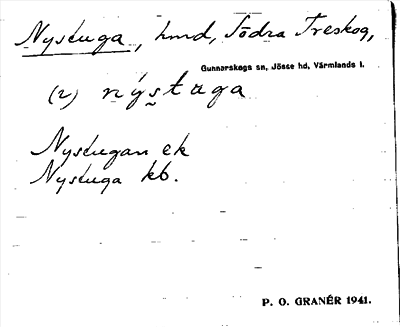 Nystuga, hmd, Södra Treskog,
Gunnarskogs sn, Jösse hd, Värmlands l.
(2) nýstuga
Nystugan ek
Nystuga kb.
P. O. GRANÉR 1941.